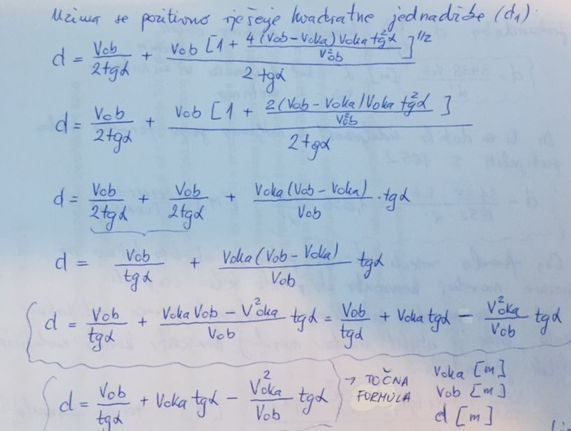 Uzima se pozitivno rješenje kvadratne jednadžbe (d₁)
d = Vob/2tgα + Vob [1 + 4(Vob-Voka)Voka tg²α / V²ob]^1/2 / 2tgα
d = Vob/2tgα + Vob [1 + 2(Vob-Voka)Voka tg²α / V²ob] / 2tgα
d = Vob/2tgα + Vob/2tgα + Voka(Vob-Voka)/Vob · tgα
d = Vob/tgα + Voka(Vob-Voka)/Vob tgα
d = Vob/tgα + VokaVob-V²oka/Vob tgα = Vob/tgα + Voka tgα - V²oka/Vob tgα
d = Vob/tgα + Voka tgα - V²oka/Vob tgα → TOČNA FORMULA
Voka [m]
Vob [m]
d [m]